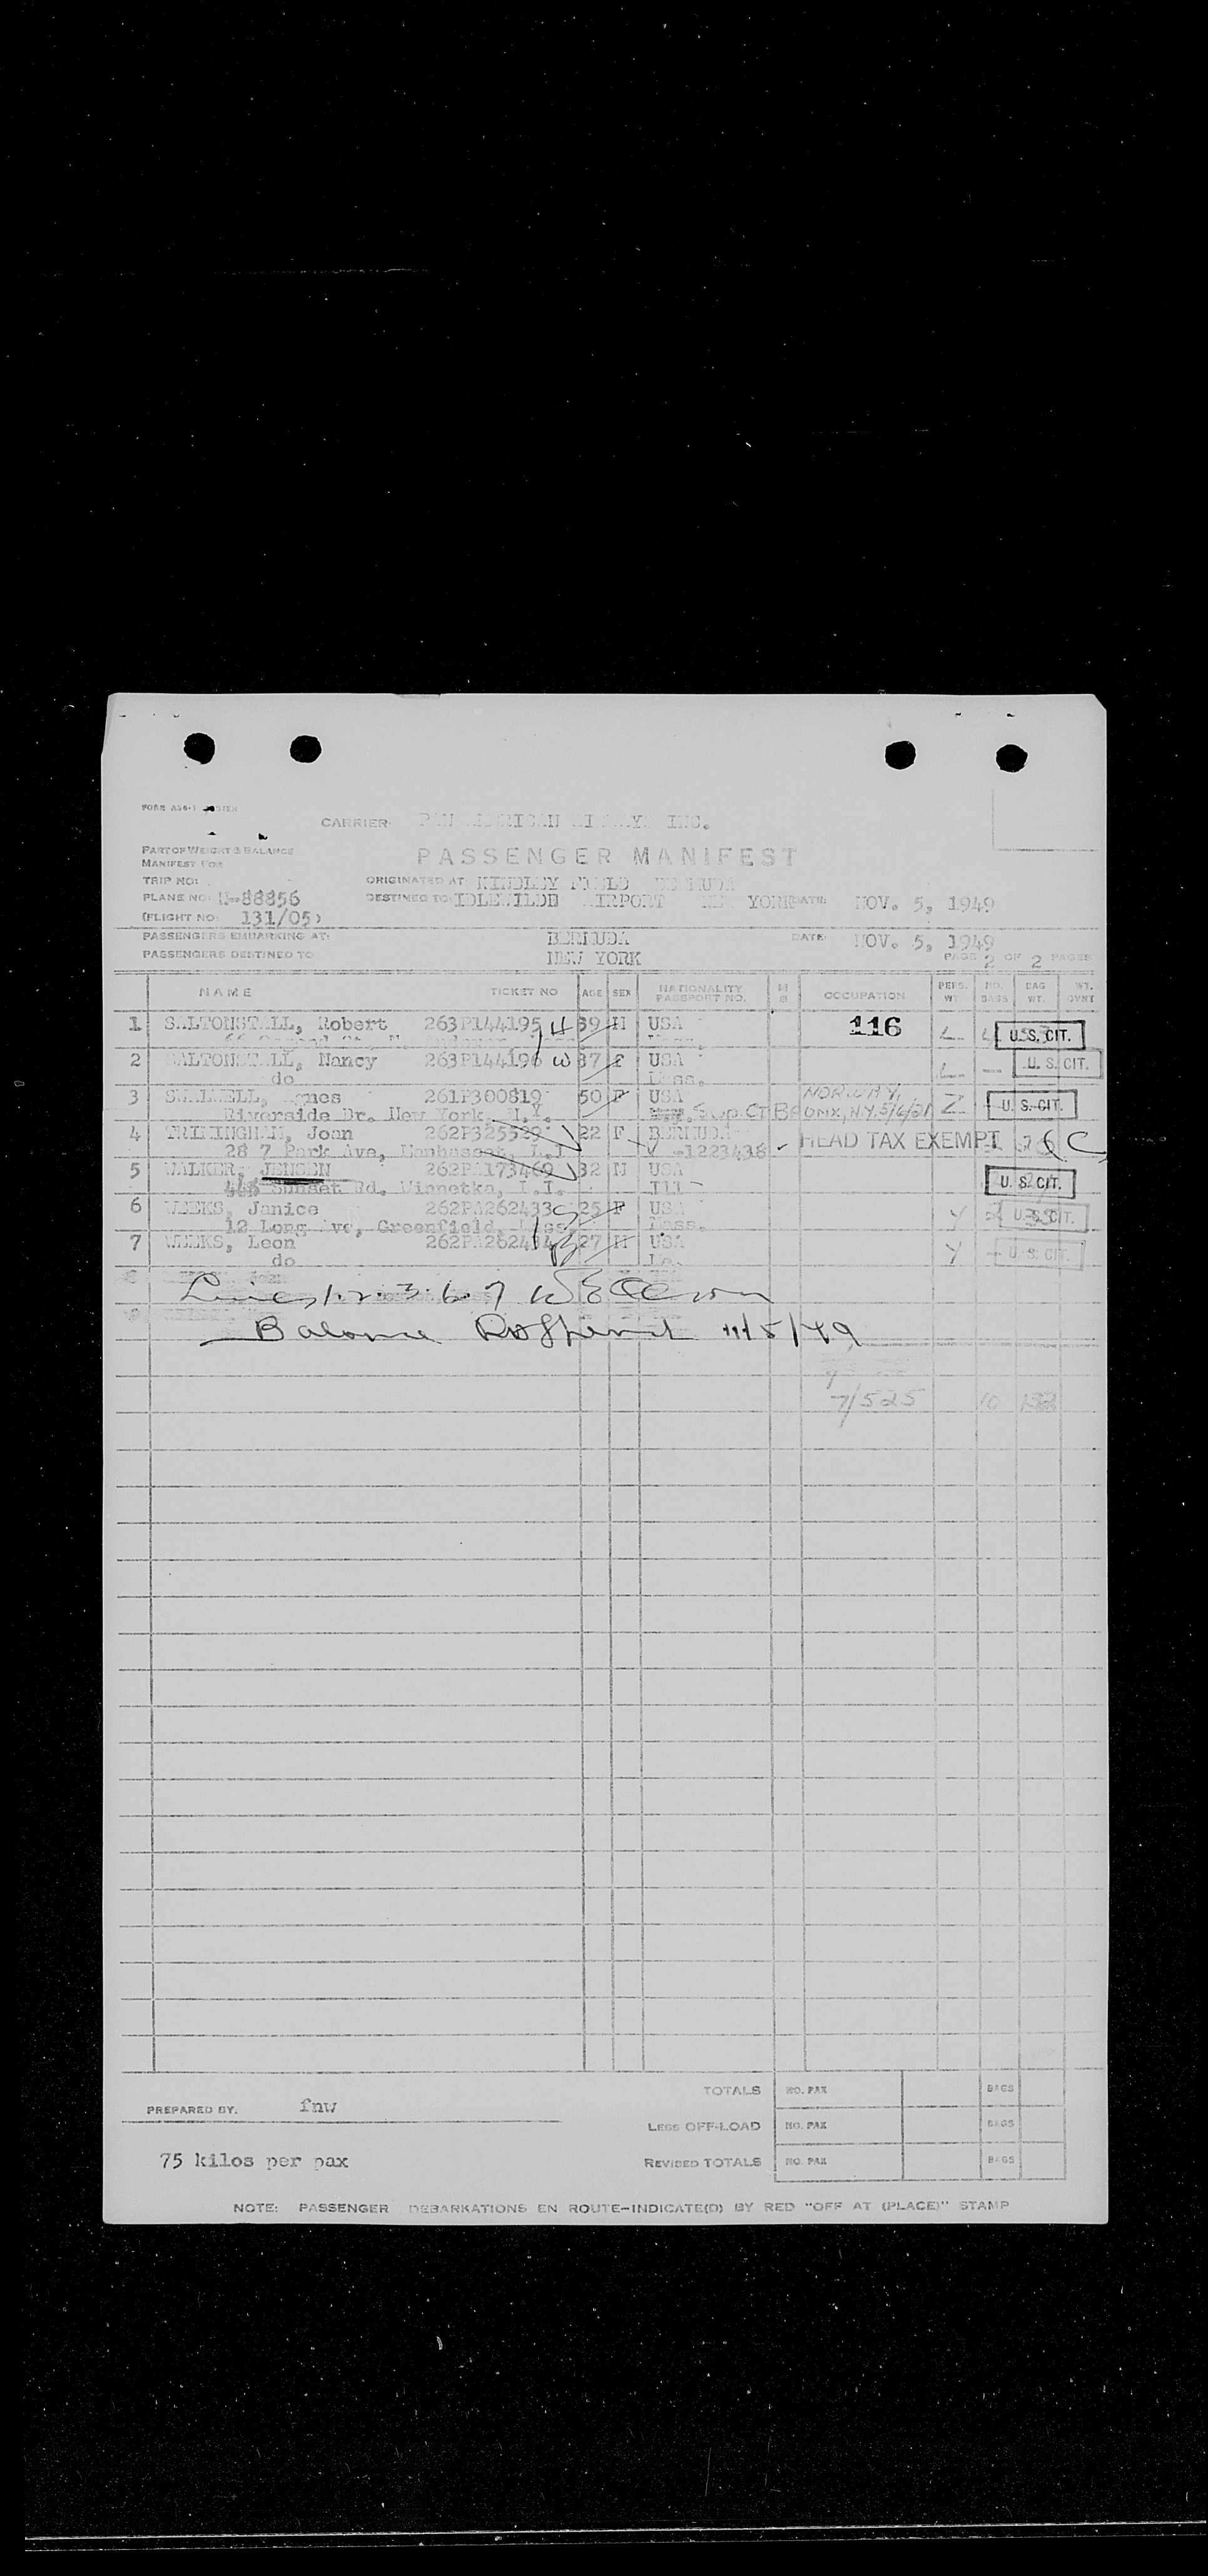 CARRIER: INC.
PART OF WEIGHT & BALANCE
MANIFEST FOR
PASSENGER MANIFEST
TRIP NO:
ORIGINATED AT KINDLEY FIELD BERMUDA
PLANE NO: N-88856
DESTINED TO: IDLEWILDE AIRPORT NEW YORK DATE: NOV. 5, 1949
(FLIGHT NO: 131/05)
PASSENGERS EMBARKING AT: BERMUDA DATE: NOV. 5, 1949
PASSENGERS DESTINED TO NEW YORK PAGE 2 OF 2 PAGES
NAME TICKET NO AGE SEX NATIONALITY PASSPORT NO. OCCUPATION PERS. WT. NO. BAGS BAG WT. WT. OVNT
1 SALTONSTALL, Robert 263P144195 H 39 M USA 116 U. S. CIT.
2 SALTONSTALL, Nancy 263P144196 W 37 F USA U. S. CIT.
do Mass.
3 Agnes 261P300819 50 F USA NORWAY, Z U. S. CIT.
Riverside Dr. New York, N.Y. Sup. CT BRONX, N.Y. 5/6/21
4 TRIMINGHAM, Joan 262P325529 22 F BERMUDA HEAD TAX EXEMPT
28 7 Park Ave, Manhasset, L.I. V -1223438
5 WALKER, JENSEN 262PA173469 32 M USA U. S. CIT.
Sunset Rd. Winnetka, Ill
6 WEEKS, Janice 262PA262433 25 F USA Y U. S. CIT.
12 Long Ave, Greenfield, Mass. Mass.
7 WEEKS, Leon 27 M USA Y U. S. CIT.
do
Lines 1. 2. 3. 6. 7
Balance 11/5/49
7/525 10 132
TOTALS NO. PAX BAGS
PREPARED BY: fnw
LESS OFF-LOAD NO. PAX BAGS
75 kilos per pax
REVISED TOTALS NO. PAX BAGS
NOTE: PASSENGER DEBARKATIONS EN ROUTE-INDICATE(D) BY RED "OFF AT (PLACE)" STAMP